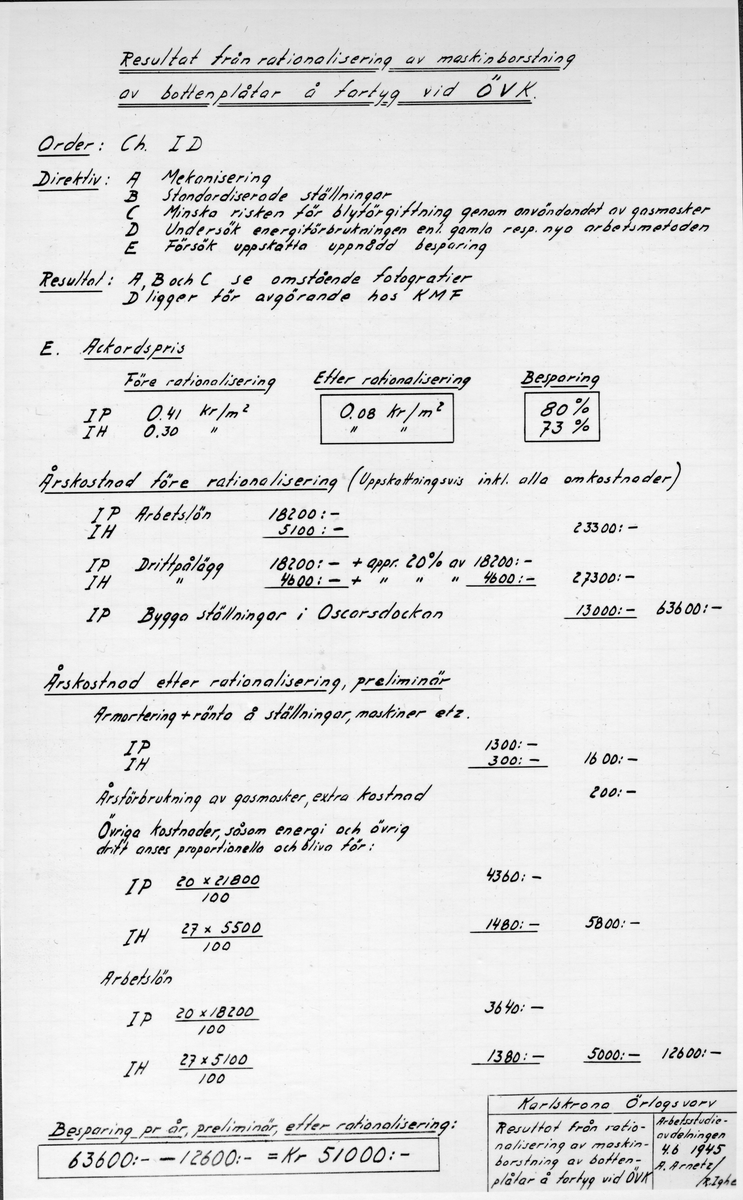 Resultat från rationalisering av maskinborstning
av bottenplåtar å fartyg vid ÖVK.
Order: Ch. ID
Direktiv: A Mekanisering
B Standardiserade ställningar
C Minska risken för blyförgiftning genom användandet av gasmasker
D Undersök energiförbrukningen enl. gamla resp. nya arbetsmetoden
E Försök uppskatta uppnådd besparing
Resultat: A, B och C se omstående fotografier
D ligger för avgörande hos KMF
E. Ackordspris
Före rationalisering Efter rationalisering Besparing
IP 0.41 kr/m² 0.08 kr/m² 80%
IH 0.30 " " " 73%
Årskostnad före rationalisering (Uppskattningsvis inkl. alla omkostnader)
IP Arbetslön 18200:-
IH 5100:- 23300:-
IP Driftpålägg 18200:- + appr. 20% av 18200:-
IH " 4600:- + " " " 4600:- 27300:-
IP Bygga ställningar i Oscarsdockan 13000:- 63600:-
Årskostnad efter rationalisering, preliminär
Armortering + ränta å ställningar, maskiner etz.
IP 1300:-
IH 300:- 1600:-
Årsförbrukning av gasmasker, extra kostnad 200:-
Övriga kostnader, såsom energi och övrig
drift anses proportionella och bliva för:
IP 20 x 21800 4360:-
100
IH 27 x 5500 1480:- 5800:-
100
Arbetslön
IP 20 x 18200 3640:-
100
IH 27 x 5100 1380:- 5000:- 12600:-
100
Besparing pr år, preliminär, efter rationalisering:
63600:- - 12600:- = Kr 51000:-
Karlskrona Örlogsvarv
Resultat från ratio-
nalisering av maskin-
borstning av botten-
plåtar å fartyg vid ÖVK
Arbetsstudie-
avdelningen
4.6 1945
A. Arnetz/